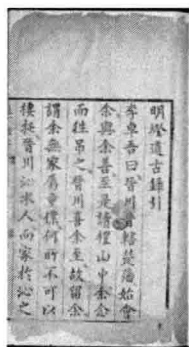 明燈道古錄引
李卓吾曰晉川昔轄楚藩始會
余與余善至是讀禮山中余念
而往弔之晉川喜余至故留余
謂余無家屬童僕何所不可以
棲托晉川沁水人而家於沁之